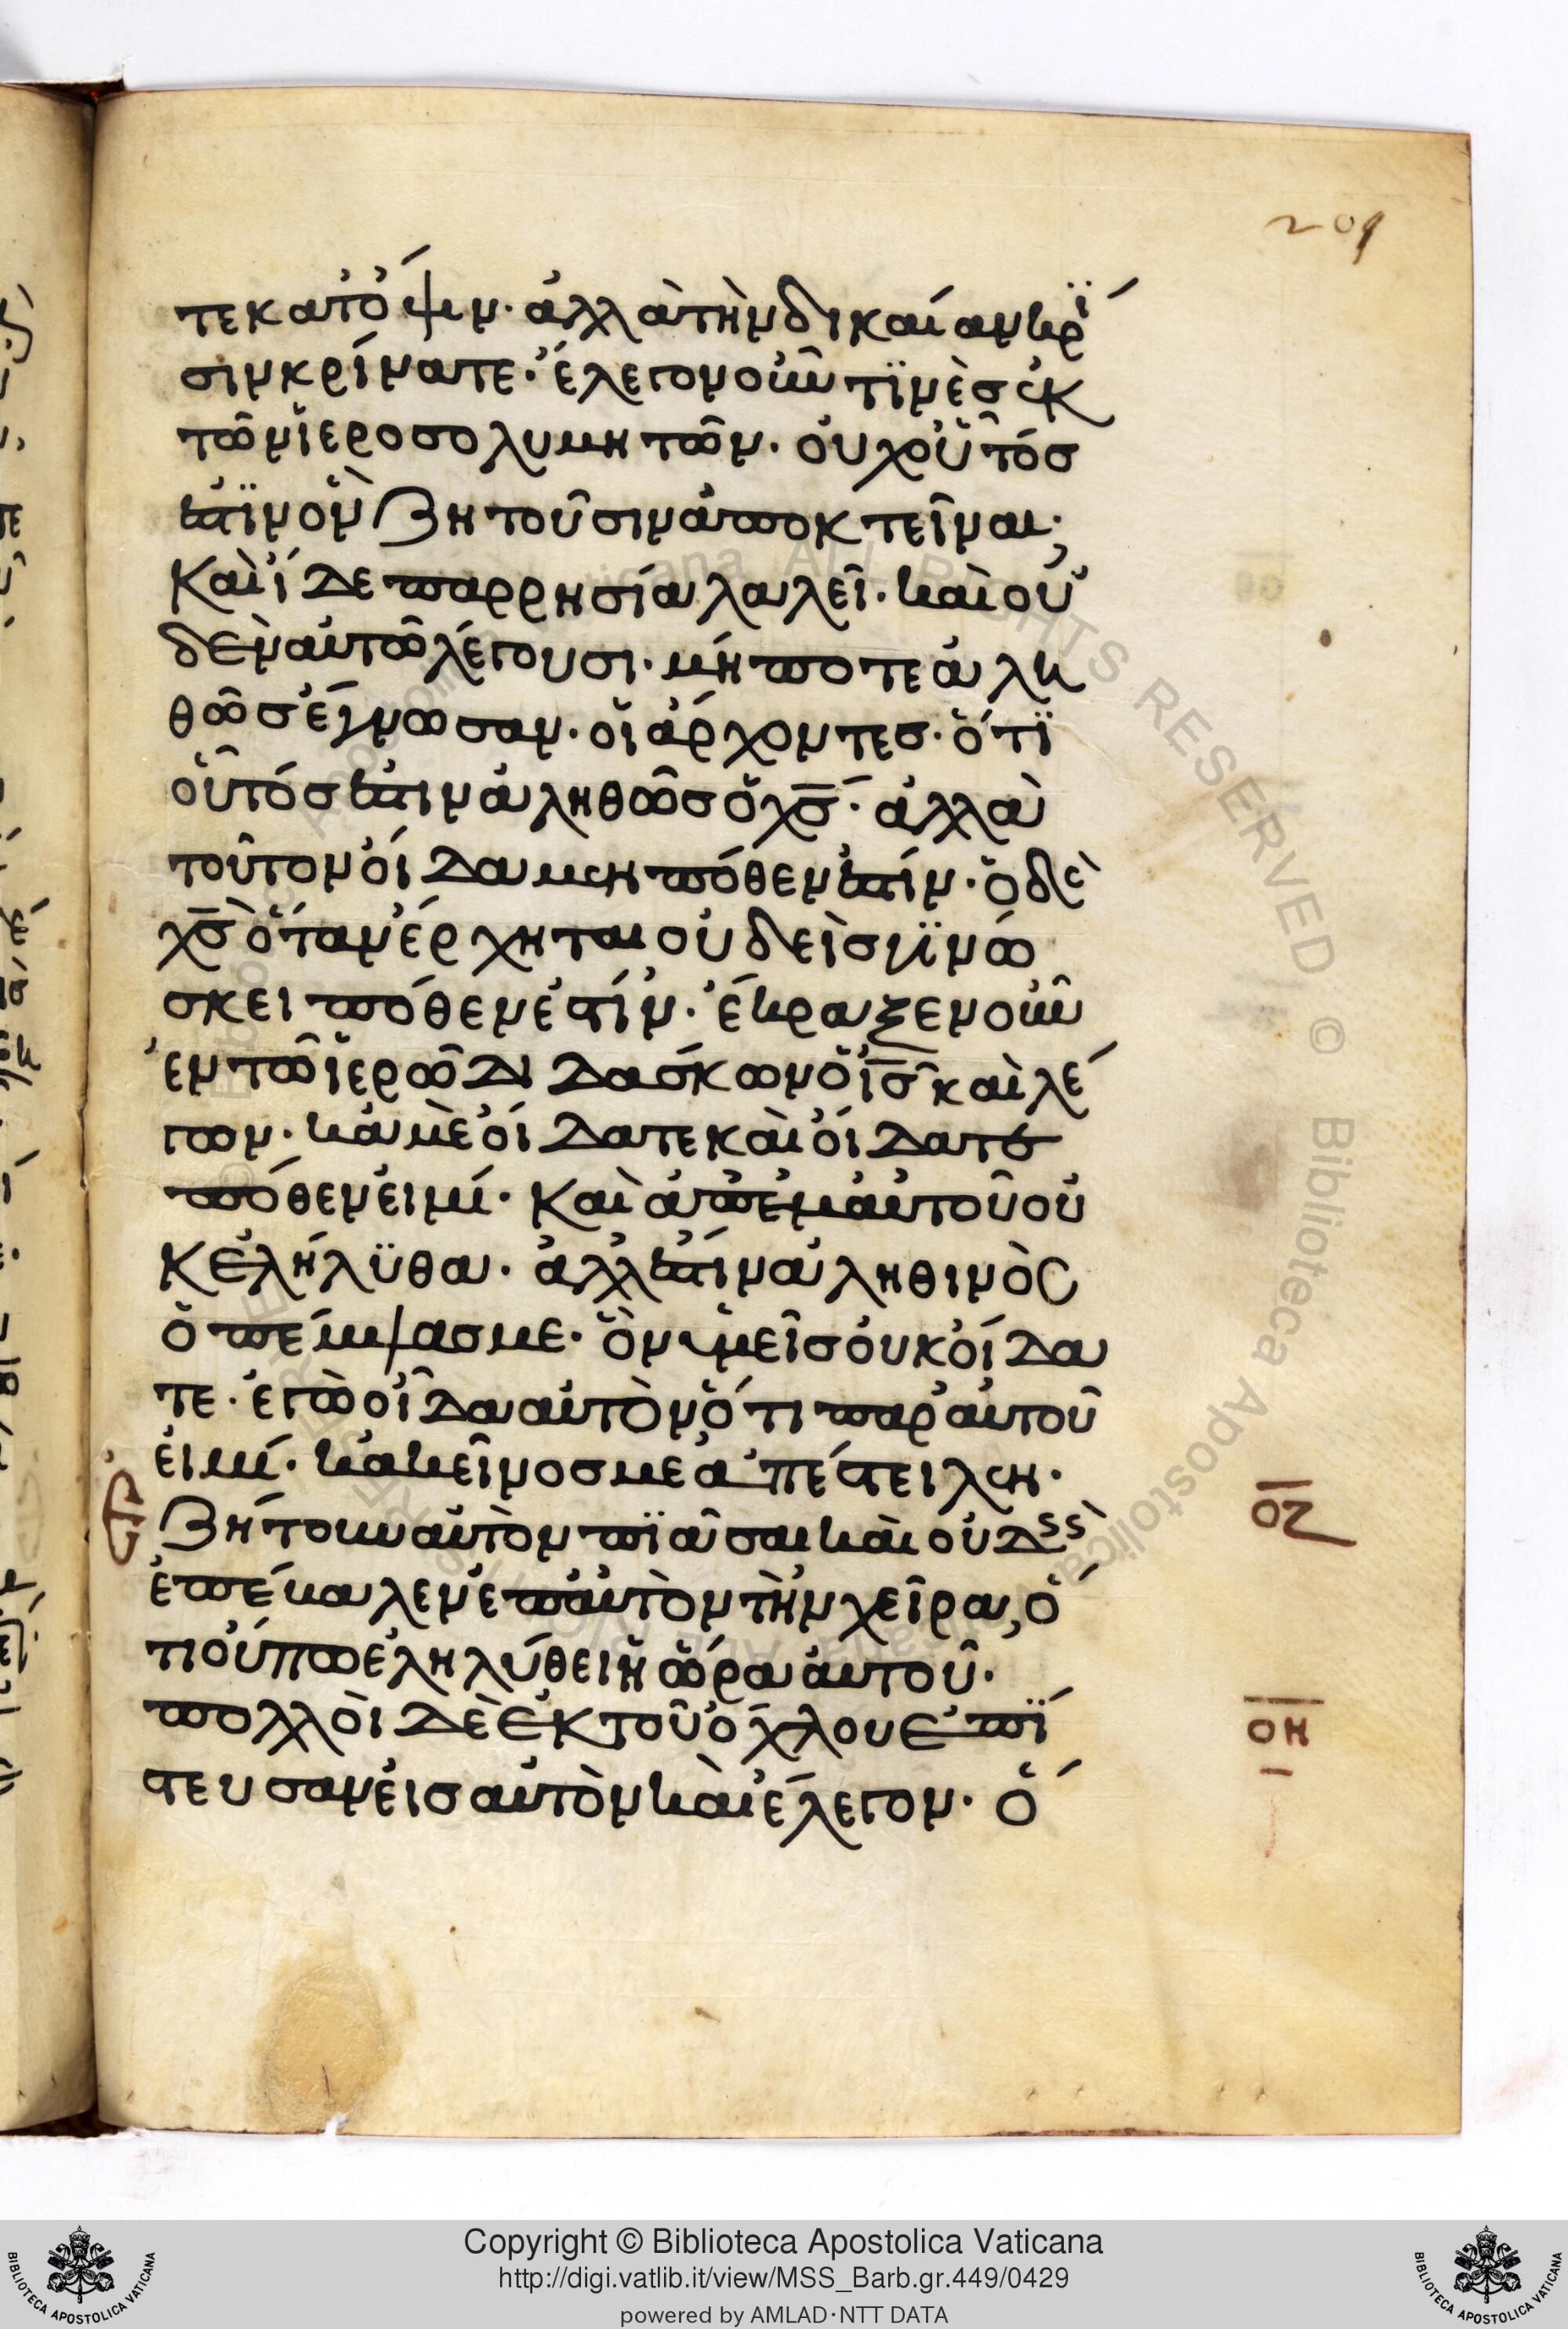 209
τε κατόψιν· ἀλλὰ τὴν δικαίαν κρί
σιν κρίνατε· ἔλεγον οὖν τϊνὲς ἐκ
τῶν ἱεροσολυμητῶν· οὐχ οὗτός
ἐστϊν ὃν ζητοῦσιν ἀποκτεῖναι;
Καὶ ἴδε παρρησία λαλεῖ· καὶ οὐ
δὲν αὐτῶ λέγουσι· μήποτε ἀλη
θῶς ἔγνωσαν· οἱ ἄρχοντες· ὅτϊ
οὗτός ἐστιν ἀληθῶς ὁ χς· ἀλλὰ
τοῦτον οἴδαμεν πόθεν ἐστίν· ὁ δὲ
χς ὅταν ἔρχηται οὐδεὶς γϊνώ
σκει πόθεν ἐστίν· ἔκραξεν οὖν
ἐν τῶ ἱερῶ διδάσκων ὁ ις καὶ λέ
γων· κἀμὲ οἴδατε καὶ οἴδατε
πόθεν εἰμί· Καὶ ἀπ' ἐμαυτοῦ οὐ
κ ἐλήλϋθα· ἀλλ' ἔστιν ἀληθινὸς
ὁ πέμψας με· ὃν ὑμεῖς οὐκ οἴδα
τε· ἐγὼ οἶδα αὐτὸν ὅτι παρ' αὐτοῦ
εἰμί· κἀκεῖνος με ἀπέστειλεν·
Ζήτουν αὐτὸν πϊᾶσαι καὶ οὐδεὶς
ἐπέβαλεν ἐπ' αὐτὸν τὴν χεῖρα, ὅ
τι οὔπω ἐληλύθει ἡ ὥρα αὐτοῦ·
πολλοὶ δὲ ἐκ τοῦ ὄχλου ἐπί
στευσαν εἰς αὐτὸν καὶ ἔλεγον· ὅ
οζ
οη
Copyright © Biblioteca Apostolica Vaticana
http://digi.vatlib.it/view/MSS_Barb.gr.449/0429
powered by AMLAD·NTT DATA
BIBLIOTECA APOSTOLICA VATICANA
BIBLIOTECA APOSTOLICA VATICANA